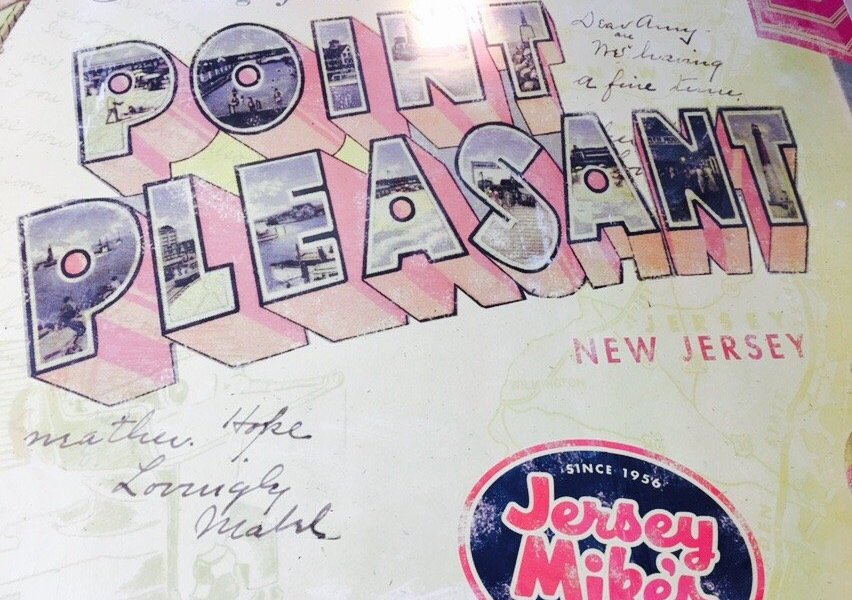 POINT
PLEASANT
Dear Amy-
are
We having
a fine time.
JERSEY
NEW JERSEY
WILMINGTON
mather. Hope
Lovingly
Mabel
SINCE 1956
Jersey
Mike's